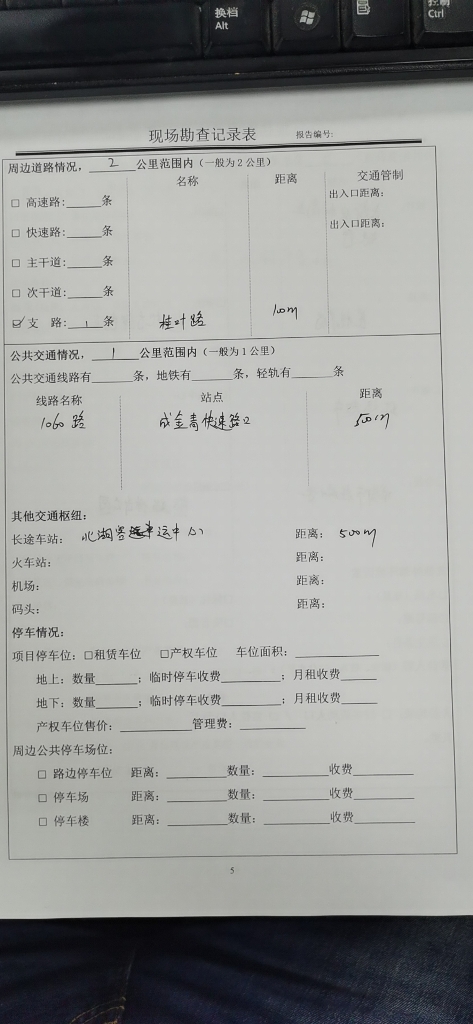 换档
Alt
控制
Ctrl
现场勘查记录表 报告编号:
周边道路情况，2公里范围内（一般为2公里）
名称 距离 交通管制
□ 高速路:______条 出入口距离：
□ 快速路:______条 出入口距离：
□ 主干道:______条
□ 次干道:______条
☑ 支 路: 1 条 桂叶路 100m
公共交通情况，1公里范围内（一般为1公里）
公共交通线路有______条，地铁有______条，轻轨有______条
线路名称 站点 距离
1060路 成金青快速路口 500m
其他交通枢纽：
长途车站： 北湖客运中心 距离： 500m
火车站： 距离：
机场： 距离：
码头： 距离：
停车情况：
项目停车位：□租赁车位 □产权车位 车位面积：____________
地上：数量______；临时停车收费_________；月租收费_____
地下：数量______；临时停车收费_________；月租收费_____
产权车位售价：__________管理费：_________
周边公共停车场位：
□ 路边停车位 距离：_________数量：_________收费_________
□ 停车场 距离：_________数量：_________收费_________
□ 停车楼 距离：_________数量：_________收费_________
5